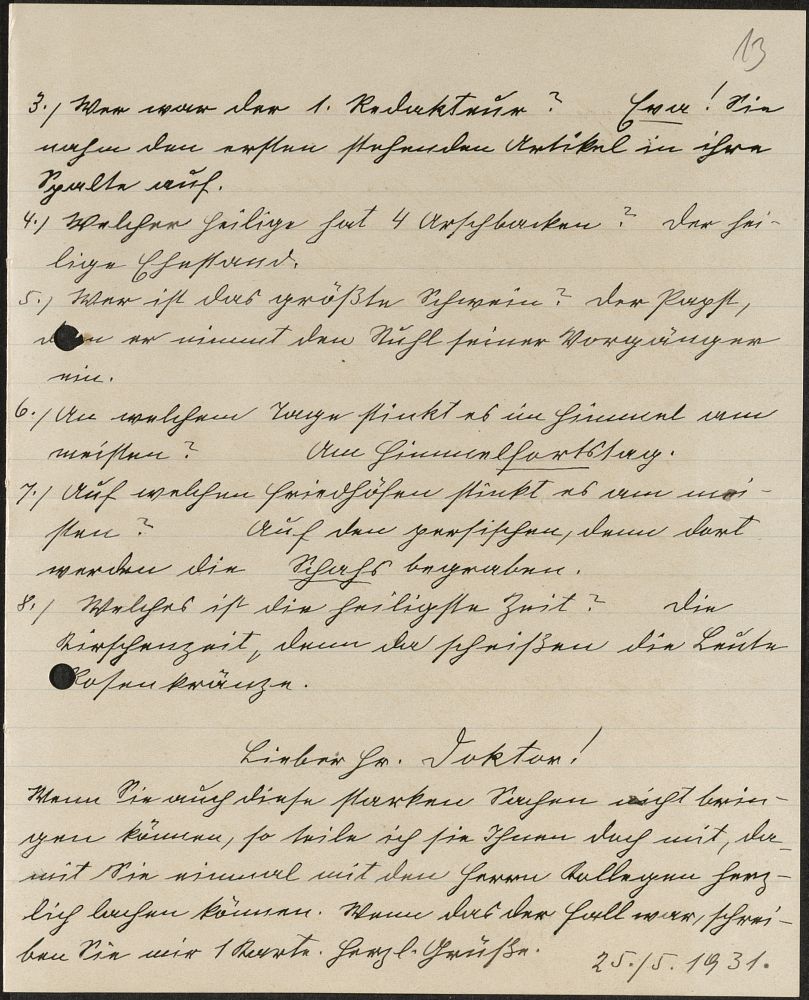 13
3./ Wer war der 1. Redakteur? Eva! Sie
nahm den ersten stehenden Artikel in ihre
Spalte auf.
4./ Welcher Heilige hat 4 Arschbacken? Der hei-
lige Ehestand.
5./ Wer ist das größte Schwein? Der Papst,
denn er nimmt den Stuhl seiner Vorgänger
ein.
6./ An welchem Tage stinkt es im Himmel am
meisten? Am Himmelfortstag.
7./ Auf welchen Friedhöfen stinkt es am mei-
sten? Auf den persischen, denn dort
werden die Schahs begraben.
8./ Welches ist die heiligste Zeit? Die
Kirschenzeit, denn da scheißen die Leute
Rosenkränze.
Lieber Hr. Doktor!
Wenn Sie auch diese starken Sachen nicht brin-
gen können, so teile ich sie Ihnen doch mit, da-
mit Sie einmal mit den Herrn Kollegen herz-
lich lachen können. Wenn das der Fall war, schrei-
ben Sie mir 1 Karte. Herzl. Grüße.
25./5. 1931.